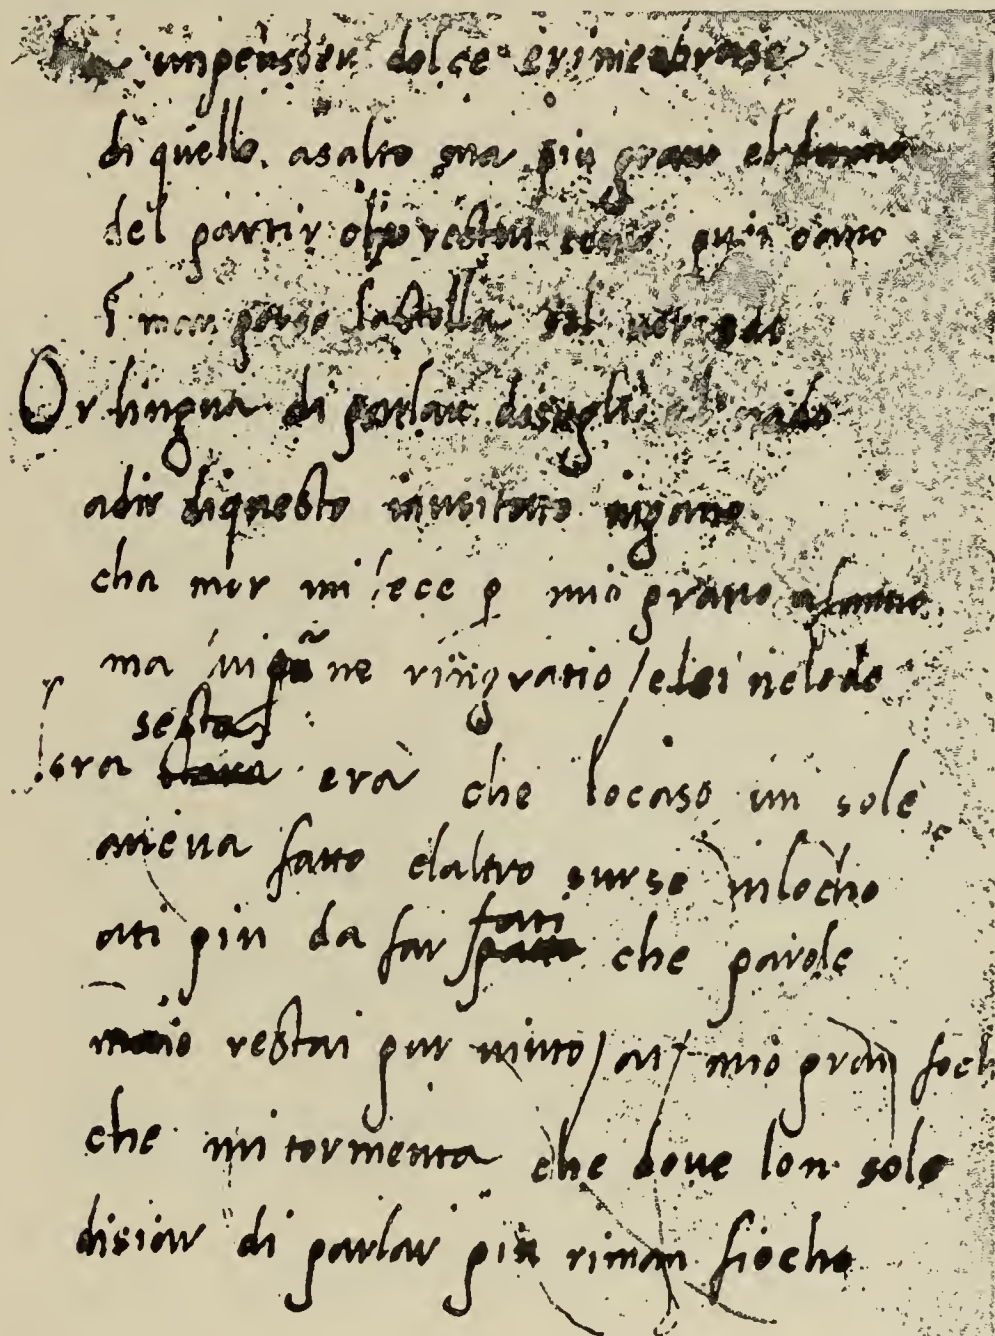 un pensier dolce e rimembrase
di quello. asalto ma piu gravo el dano
del partir chio restai como quei cano
in mar perso la stella sel ver odo
Or lingua di parlar disogli el nodo
a dir di questo inusitato ingano
cha mor mi fece p mio gravo afanno
ma lui piu ne ringratio / e lei ne lodo
sesta
lora era che locaso un sole
aueua fatto e laltro surse in locho
fati
ati piu da far che parole
ma io restai pur uinto / al / mio gran foch
che mi tormenta che doue lon sole
disiar di parlar piu riman fiocho